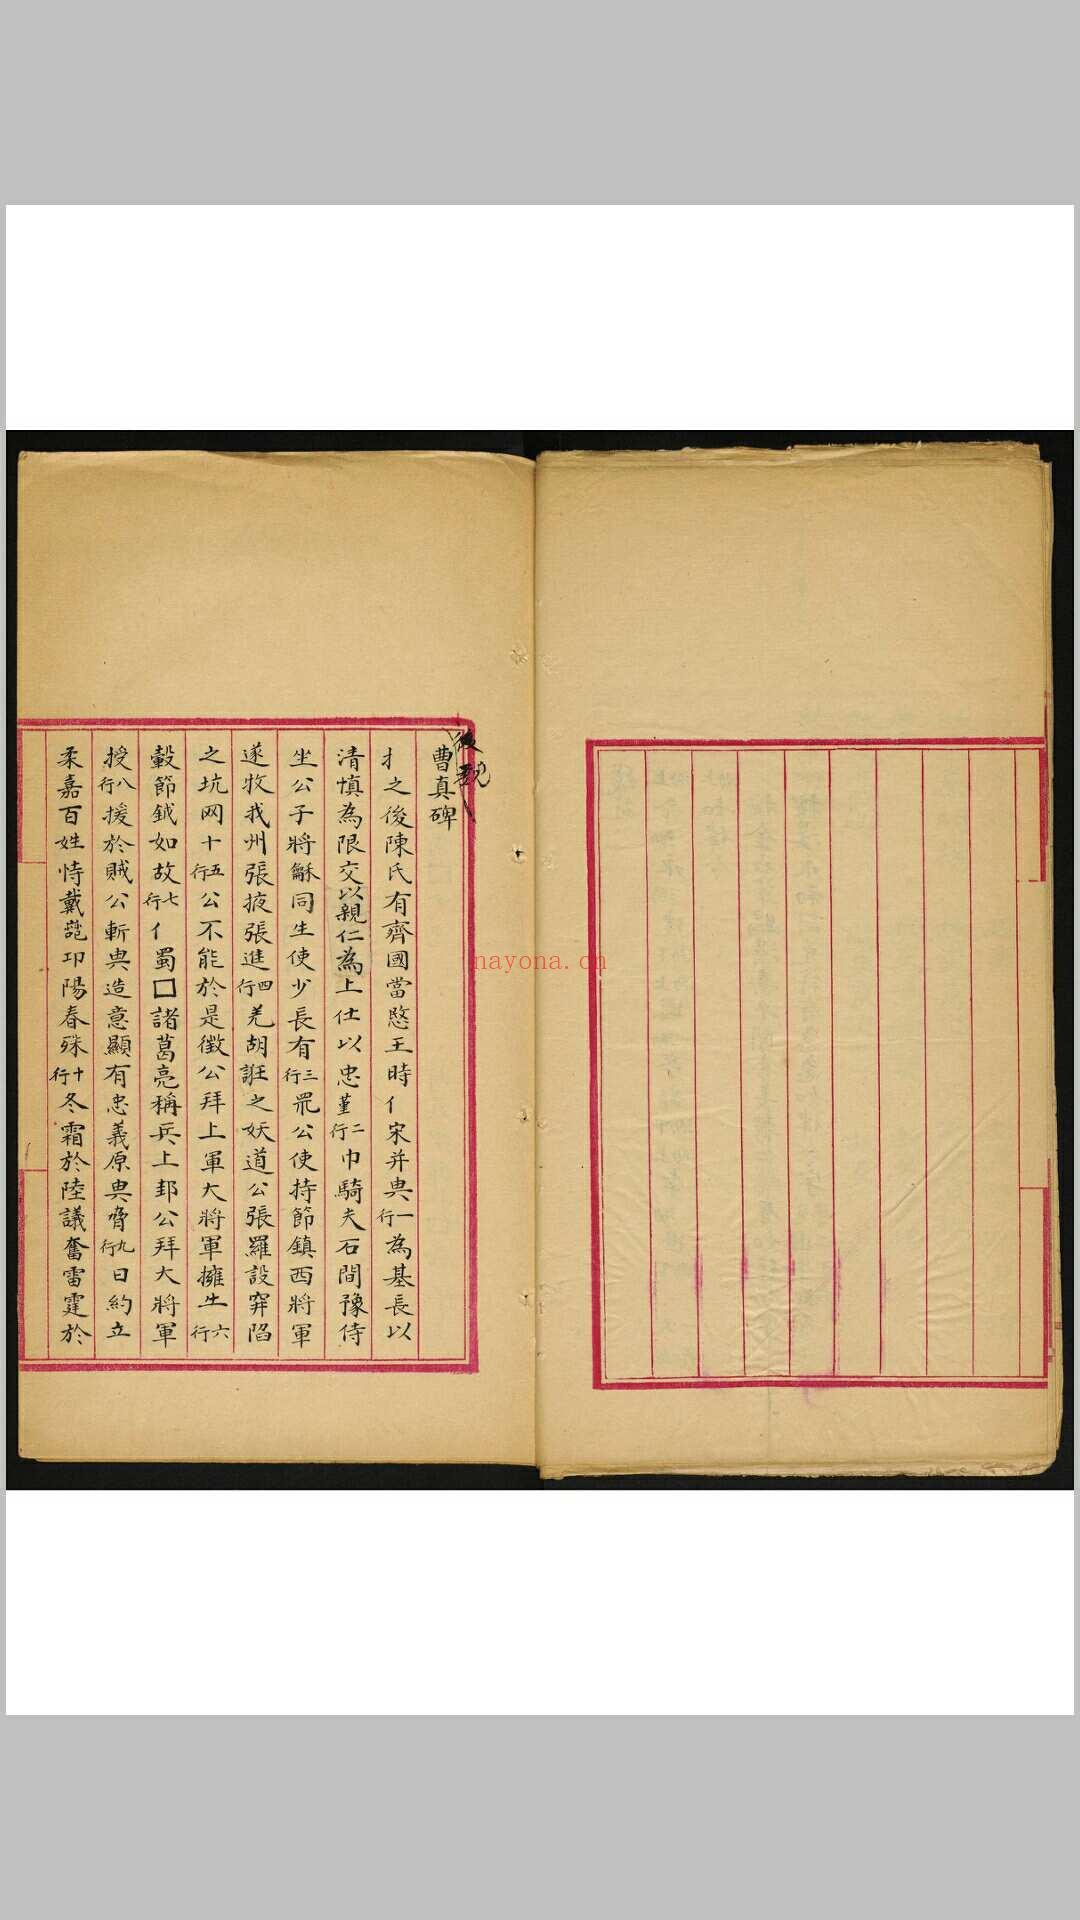 後魏
曹真碑
扌之後陳氏有齊國當愍王時亻宋并典一行為基長以
清慎為限交以親仁為上仕以忠堇二行巾騎夫石間豫侍
坐公子將龢同生使少長有三行眾公使持節鎮西將軍
遂牧我州張掖張進四行羌胡誑之妖道公張羅設穽陷
之坑网十五行公不能於是徵公拜上軍大將軍擁𠂒六行
轂節鉞如故七行亻蜀囗諸葛亮稱兵上邽公拜大將軍
授八行援於賊公斬典造意顯有忠義原典脅九行日約立
柔嘉百姓恃戴邛陽春殊十行冬霜於陸議奮雷霆於
nayona.cn